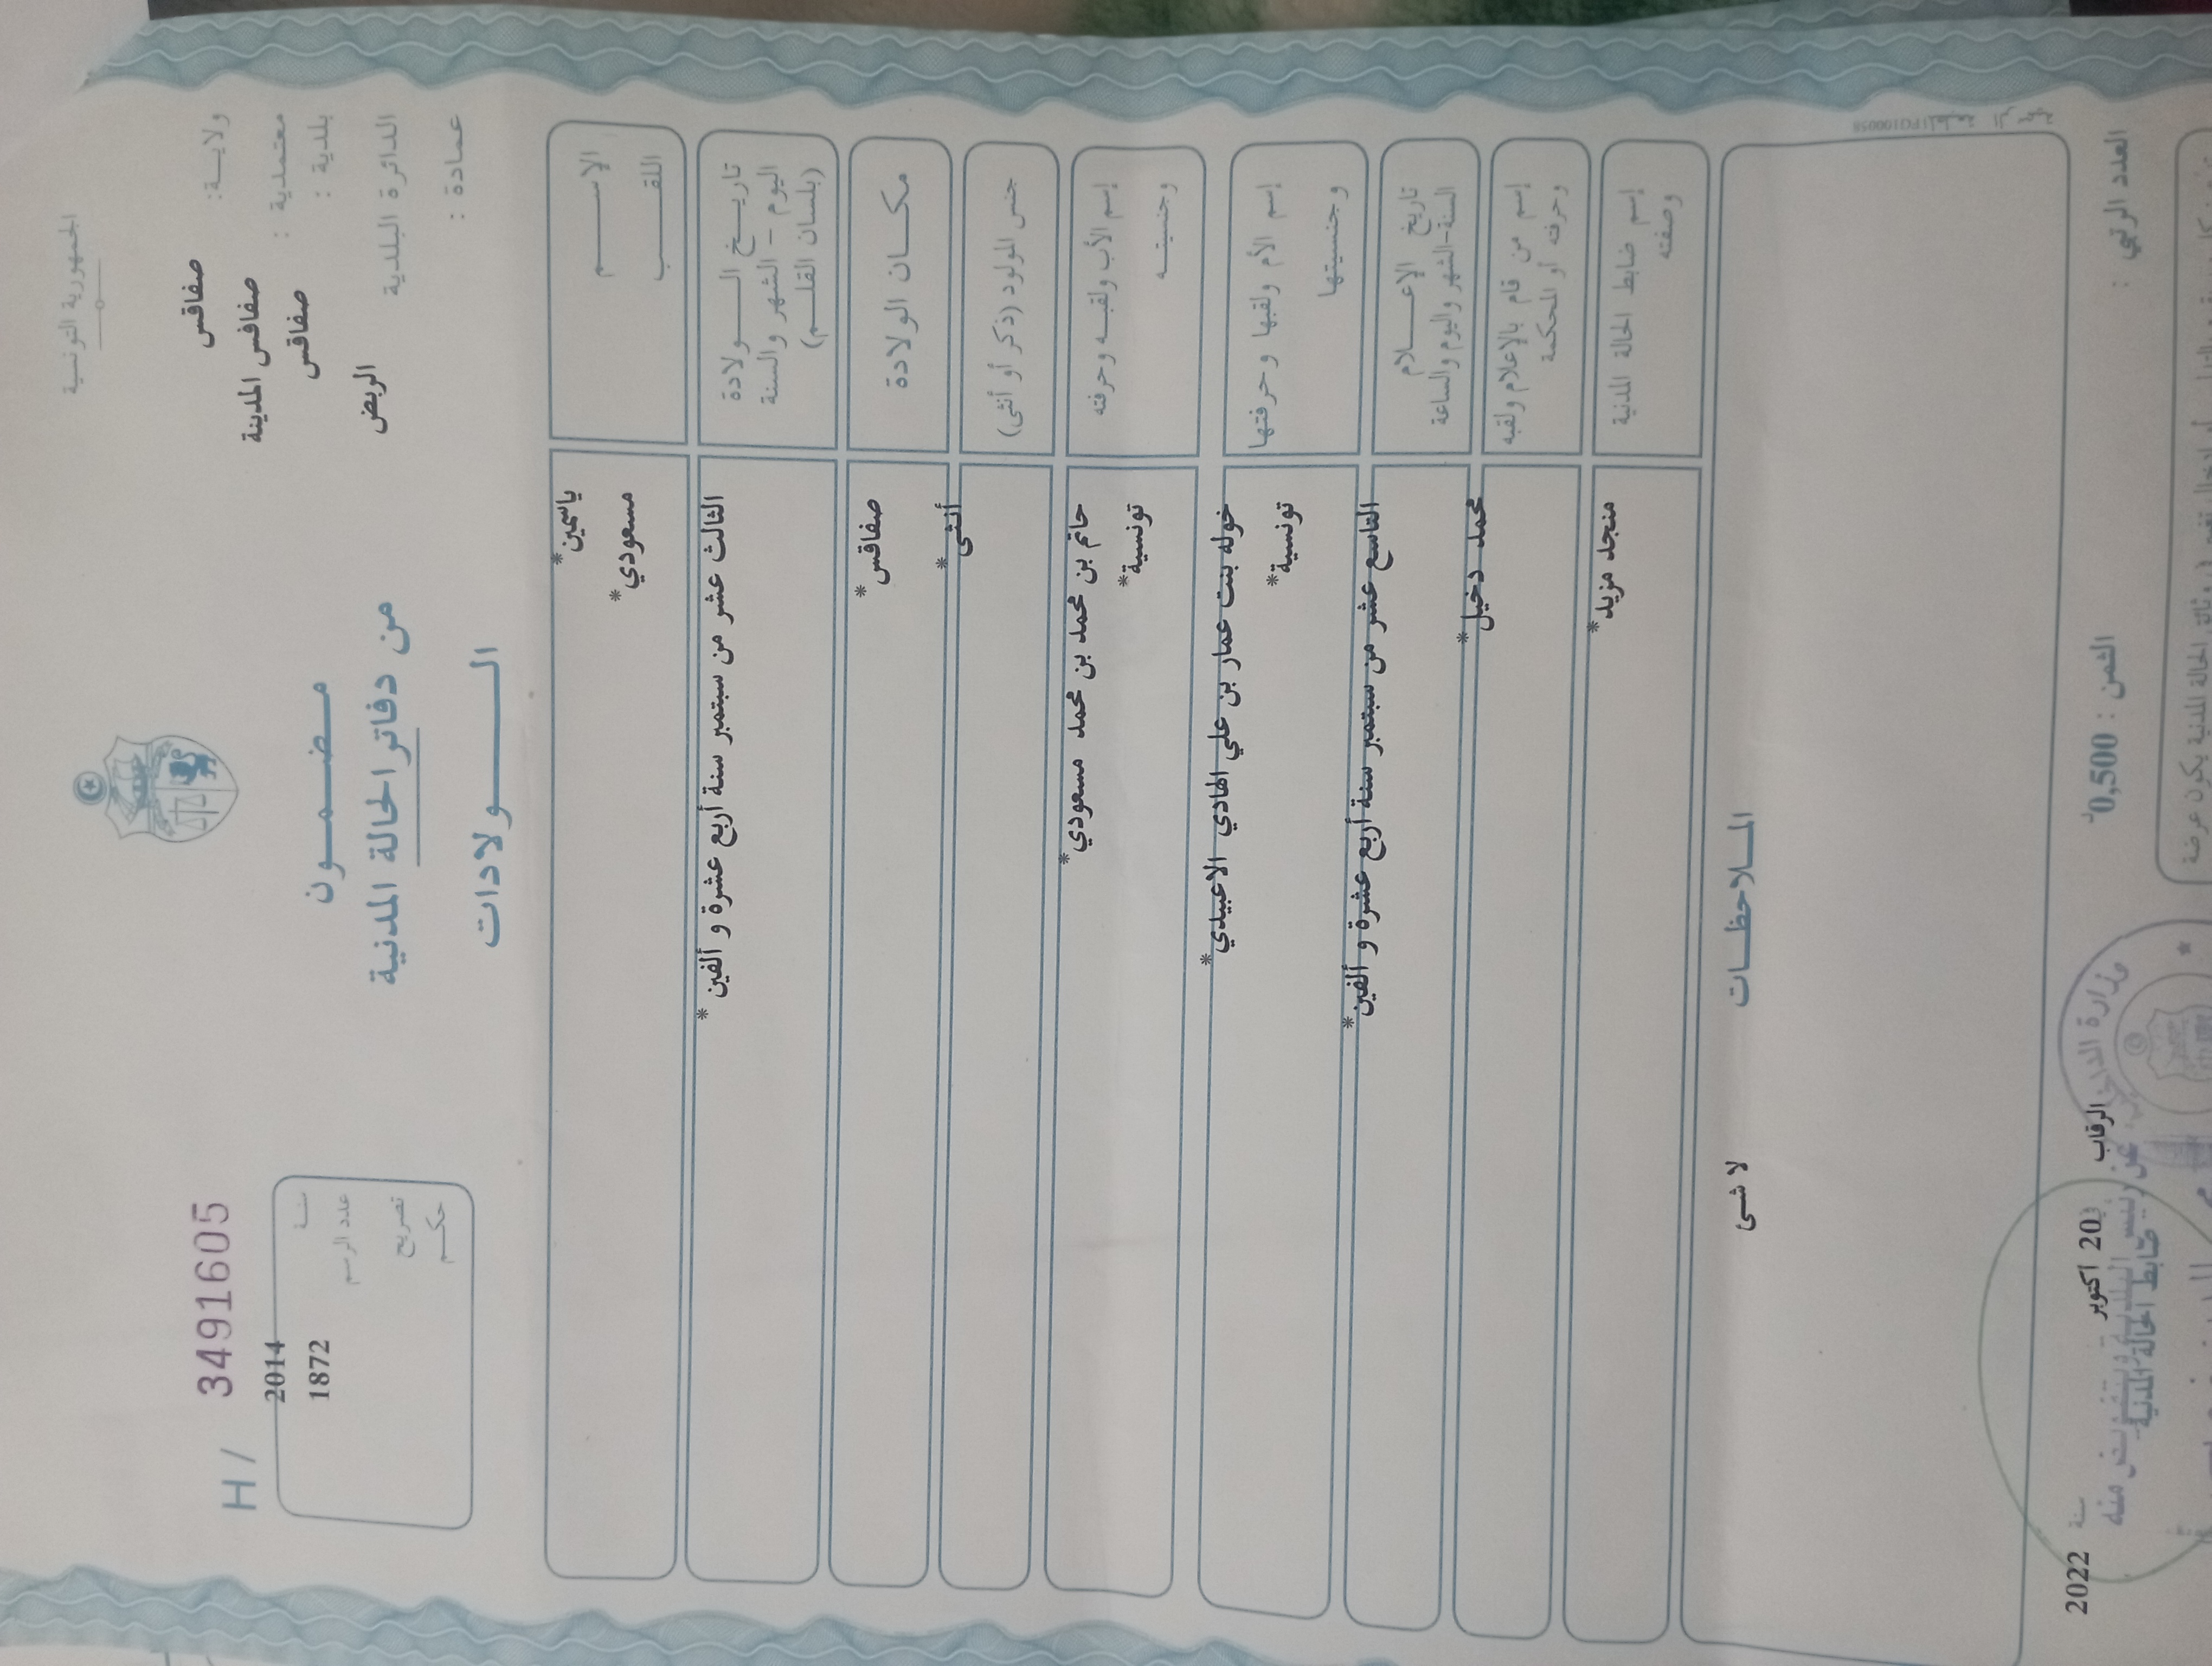 الجمهورية التونسية
ولايـــة: صفاقس
معتمدية : صفاقس المدينة
بلدية : صفاقس
الدائرة البلدية الربض
عمادة :
مـضـمـون
من دفاتر الحالة المدنية
الـــولادات
H / 3491605
سنـــة 2014
عدد الرسم 1872
تصريح
حكـــم
الإســـــم ياسمين*
اللقـــب مسعودي*
تاريــخ الـــولادة الثالث عشر من سبتمبر سنة أربع عشرة و ألفين*
اليوم – الشهر والسنة
(بلسان القلــم)
مكــان الولادة صفاقس*
جنس المولود (ذكر أو أنثى) أنثى*
إسم الأب ولقبـه وحرفته حاتم بن محمد بن محمد مسعودي*
وجنسيتـــه تونسية*
إسم الأم ولقبها وحرفتها خوله بنت عمار بن علي الهادي الاعبيدي*
وجنسيتها تونسية*
تاريخ الإعـــلام التاسع عشر من سبتمبر سنة أربع عشرة و ألفين*
السنة-الشهر واليوم والساعة
إسم من قام بالإعلام ولقبه محمد دخيل*
وحرفته أو المحكمة
إسم ضابط الحالة المدنية منجد مزيد*
وصفته
المـلاحظـات
لا شئ
العدد الرتبي :
الثمن : 0,500د
الرقاب 20 اكتوبر سنة 2022
وزارة الداخلية
عن رئيس البلدية وبتفويض منه
ضابط الحالة المدنية